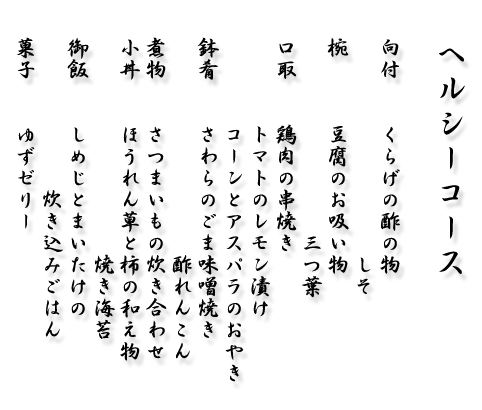 ヘルシーコース
向付　くらげの酢の物
しそ
椀　豆腐のお吸い物
三つ葉
口取　鶏肉の串焼き
トマトのレモン漬け
コーンとアスパラのおやき
鉢肴　さわらのごま味噌焼き
酢れんこん
煮物　さつまいもの炊き合わせ
小丼　ほうれん草と柿の和え物
焼き海苔
御飯　しめじとまいたけの
炊き込みごはん
菓子　ゆずゼリー